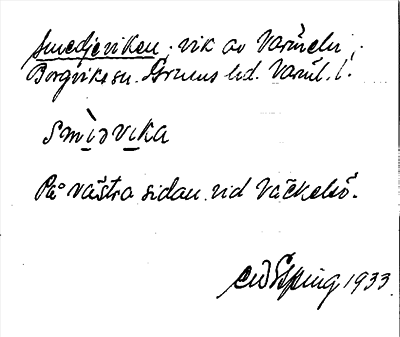 Smedjeviken, vik av Vänern,
Borgviks sn. Grums hd. Värml. l.
Smìɔvika
På västra sidan vid Väckelsö.
1933